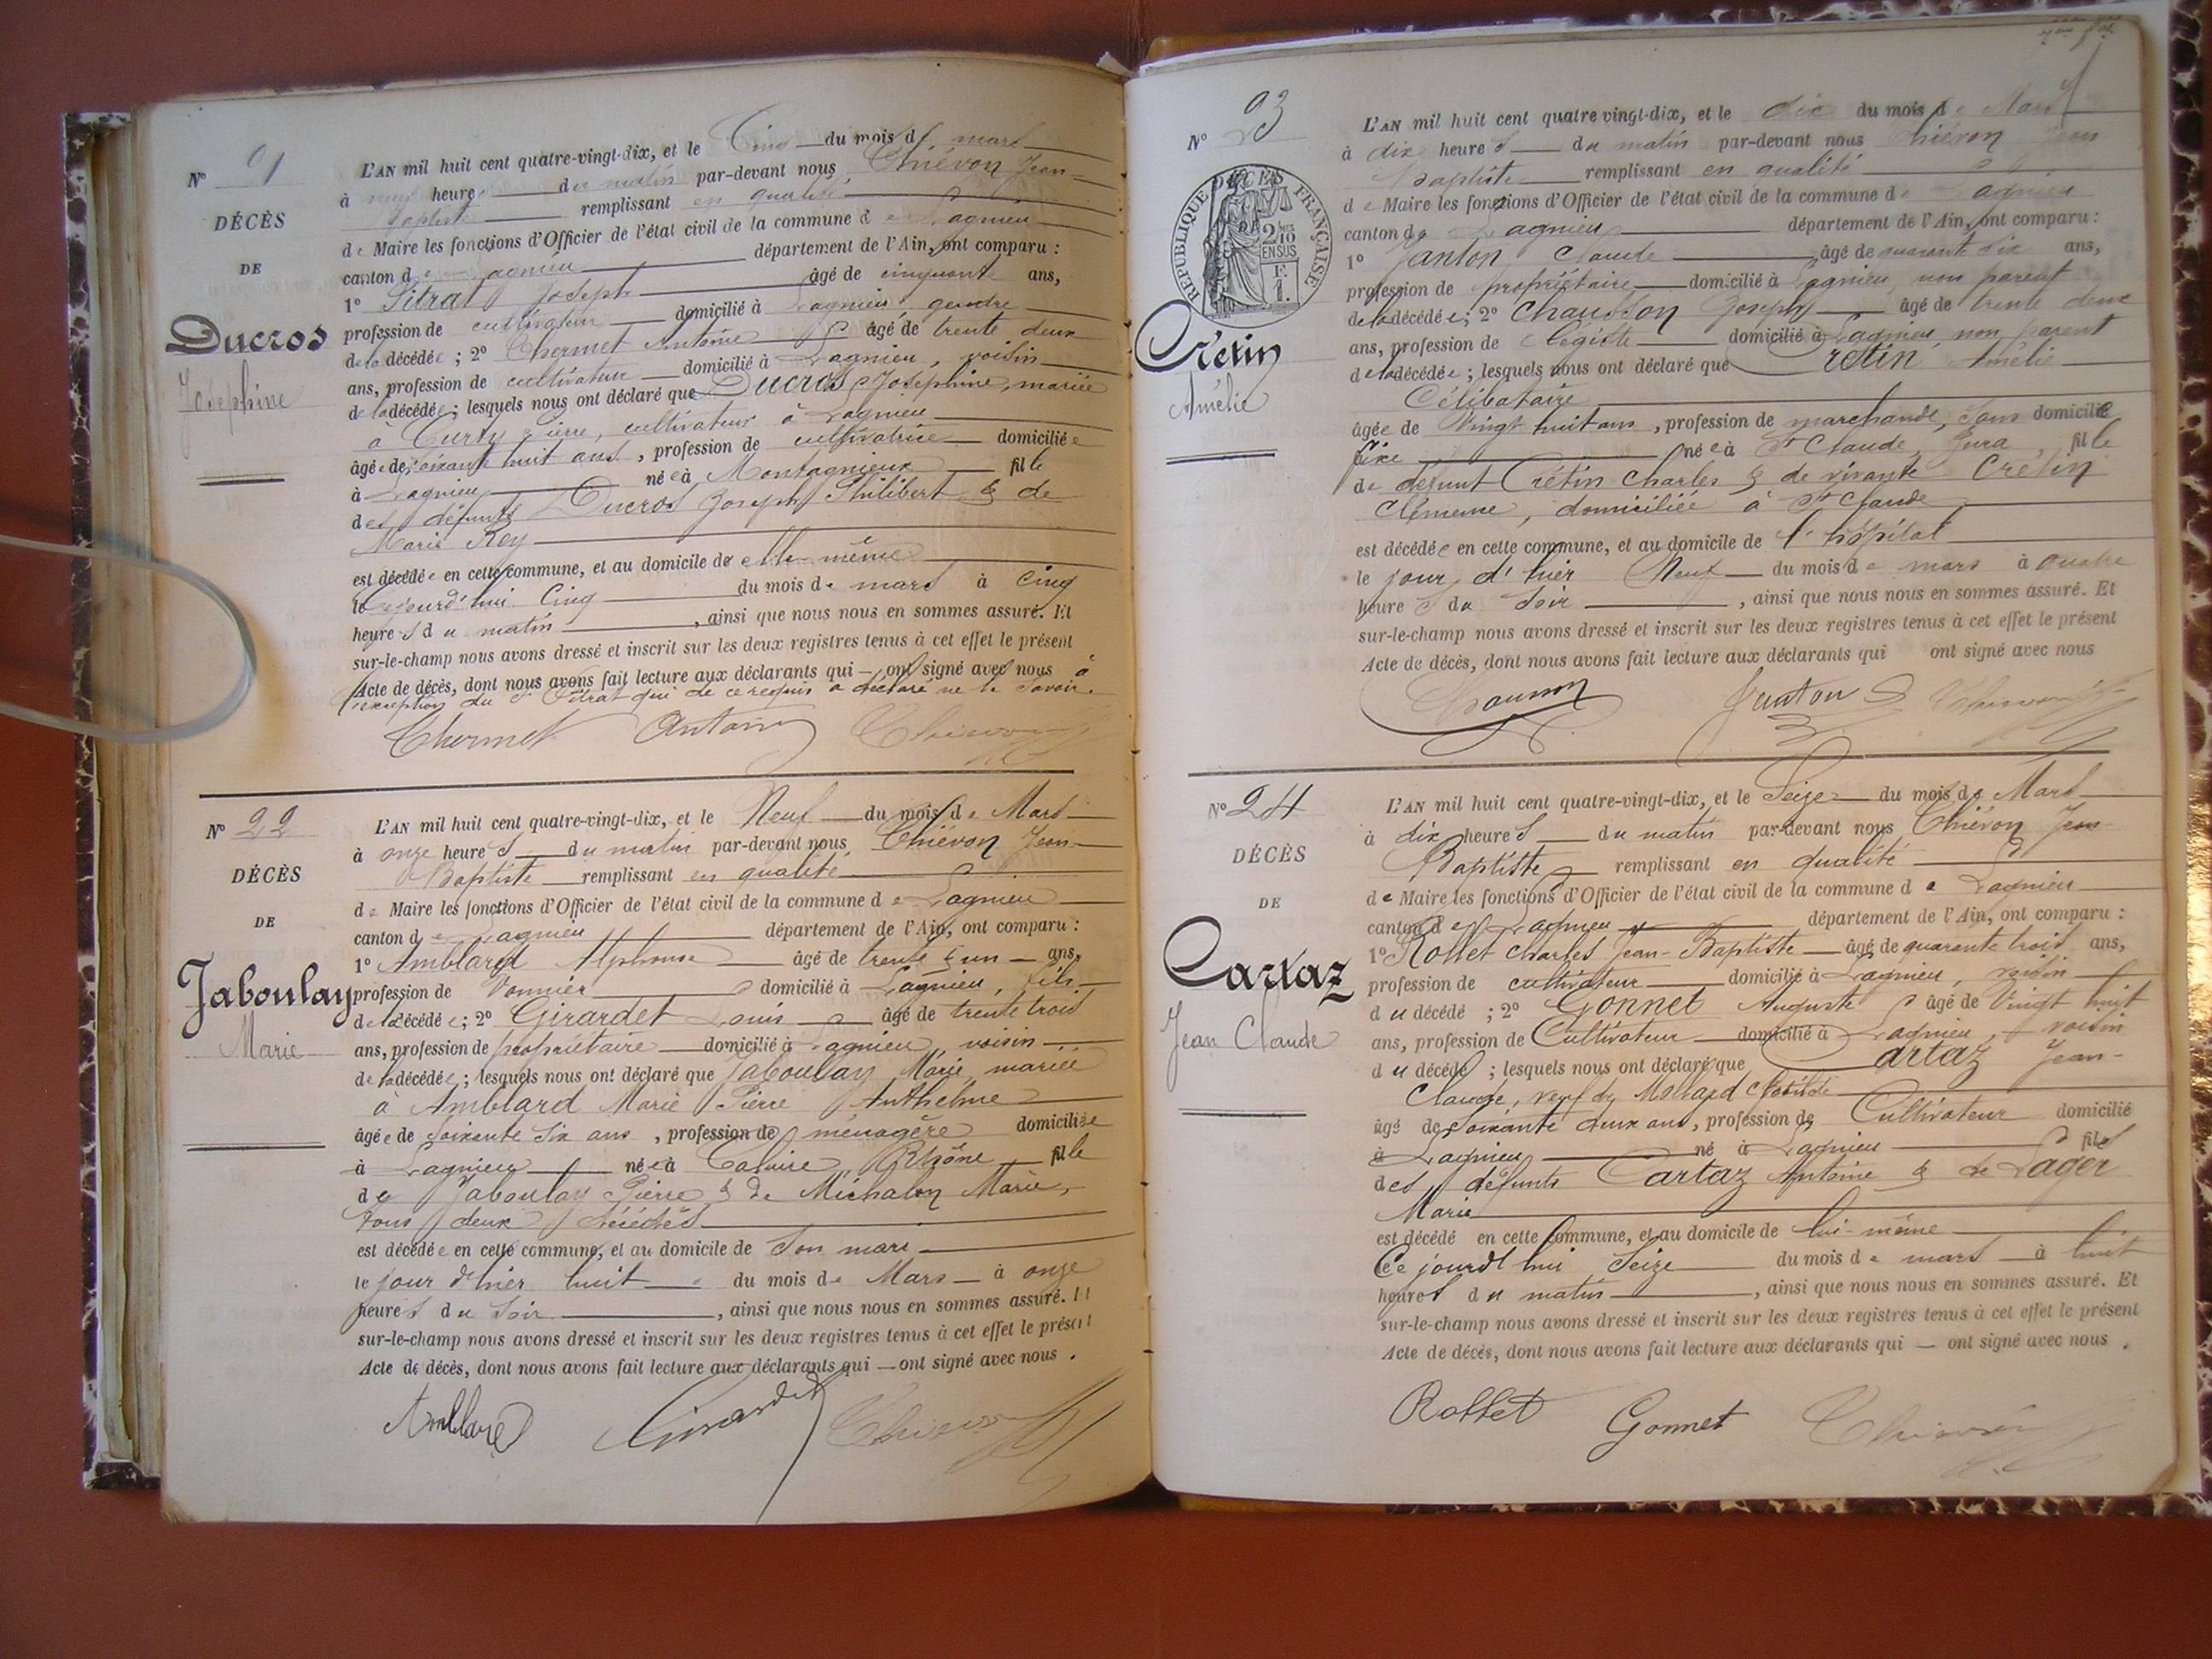 Nº 21
DÉCÈS
DE
Ducros
Joséphine
L'AN mil huit cent quatre-vingt-dix, et le Cinq du mois de mars
à neuf heures du matin par-devant nous Chiévon Jean-
Baptiste remplissant en qualité
de Maire les fonctions d'Officier de l'état civil de la commune de Lagnieu
canton de Lagnieu département de l'Ain, ont comparu :
1º Joseph âgé de cinquante ans,
profession de cultivateur domicilié à Lagnieu, gendre
de la décédée ; 2º Chermet Antoine âgé de trente deux
ans, profession de cultivateur domicilié à Lagnieu, voisin
de la décédée ; lesquels nous ont déclaré que Ducros Joséphine, mariée
à Curty Pierre, cultivateur à Lagnieu
âgée de soixante huit ans, profession de cultivatrice domiciliée
à Lagnieu née à Montagnieux fille
des défunts Ducros Joseph Philibert & de
Marie Rey
est décédée en cette commune, et au domicile de elle-même
aujourd'hui Cinq du mois de mars à cinq
heures du matin, ainsi que nous nous en sommes assuré. Et
sur-le-champ nous avons dressé et inscrit sur les deux registres tenus à cet effet le présent
Acte de décès, dont nous avons fait lecture aux déclarants qui ont signé avec nous à
l'exception du Sr qui de ce requis a déclaré ne le savoir.
Chermet Antoine Chiévon
Nº 22
DÉCÈS
DE
Jaboulay
Marie
L'AN mil huit cent quatre-vingt-dix, et le Neuf du mois de Mars
à onze heures du matin par-devant nous Chiévon Jean-
Baptiste remplissant en qualité
de Maire les fonctions d'Officier de l'état civil de la commune de Lagnieu
canton de Lagnieu département de l'Ain, ont comparu :
1º Amblard Alphonse âgé de trente & un ans,
profession de domicilié à Lagnieu, fils
de la décédée ; 2º Girardet Louis âgé de trente trois
ans, profession de propriétaire domicilié à Lagnieu, voisin
de la décédée ; lesquels nous ont déclaré que Jaboulay Marie, mariée
à Amblard Marie Pierre Anthelme
âgée de soixante six ans, profession de ménagère domiciliée
à Lagnieu née à Caluire, Rhône fille
de Jaboulay Pierre & de Michalon Marie,
tous deux décédés
est décédée en cette commune, et au domicile de son mari
le jour d'hier huit du mois de Mars à onze
heures du soir, ainsi que nous nous en sommes assuré. Et
sur-le-champ nous avons dressé et inscrit sur les deux registres tenus à cet effet le présent
Acte de décès, dont nous avons fait lecture aux déclarants qui ont signé avec nous.
Amblard Girardet Chiévon
Nº 23
RÉPUBLIQUE FRANÇAISE
DÉCÈS
2/10
EN SUS
1 F.
Crétin
Amélie
L'AN mil huit cent quatre vingt-dix, et le dix du mois de Mars
à dix heures du matin par-devant nous Chiévon Jean
Baptiste remplissant en qualité
de Maire les fonctions d'Officier de l'état civil de la commune de Lagnieu
canton de Lagnieu département de l'Ain, ont comparu :
1º Janton Claude âgé de quarante six ans,
profession de propriétaire domicilié à Lagnieu, non parent
de la décédée ; 2º Chausson Joseph âgé de trente deux
ans, profession de légiste domicilié à Lagnieu, non parent
de la décédée ; lesquels nous ont déclaré que Crétin Amélie
Célibataire
âgée de Vingt huit ans, profession de marchande, sans domicile
fixe née à St Claude, Jura, fille
de défunt Crétin Charles & de vivante Crétin
Clémence, domiciliée à St Claude
est décédée en cette commune, et au domicile de l'hôpital
le jour d'hier Neuf du mois de mars à quatre
heures du soir, ainsi que nous nous en sommes assuré. Et
sur-le-champ nous avons dressé et inscrit sur les deux registres tenus à cet effet le présent
Acte de décès, dont nous avons fait lecture aux déclarants qui ont signé avec nous
Chausson Janton Chiévon
Nº 24
DÉCÈS
DE
Cartaz
Jean Claude
L'AN mil huit cent quatre-vingt-dix, et le Seize du mois de Mars
à dix heures du matin par-devant nous Chiévon Jean-
Baptiste remplissant en qualité
de Maire les fonctions d'Officier de l'état civil de la commune de Lagnieu
canton de Lagnieu département de l'Ain, ont comparu :
1º Rollet Charles Jean-Baptiste âgé de quarante trois ans,
profession de cultivateur domicilié à Lagnieu, voisin
du décédé ; 2º Gonnet Auguste âgé de Vingt huit
ans, profession de Cultivateur domicilié à Lagnieu, voisin
du décédé ; lesquels nous ont déclaré que Cartaz Jean-
Claude, veuf de Mollard Clotilde
âgé de soixante deux ans, profession de Cultivateur domicilié
à Lagnieu né à Lagnieu fils
des défunts Cartaz Antoine & de Lager
Marie
est décédé en cette commune, et au domicile de lui-même
Ce jourd'hui Seize du mois de mars à huit
heures du matin, ainsi que nous nous en sommes assuré. Et
sur-le-champ nous avons dressé et inscrit sur les deux registres tenus à cet effet le présent
Acte de décès, dont nous avons fait lecture aux déclarants qui ont signé avec nous.
Rollet Gonnet Chiévon